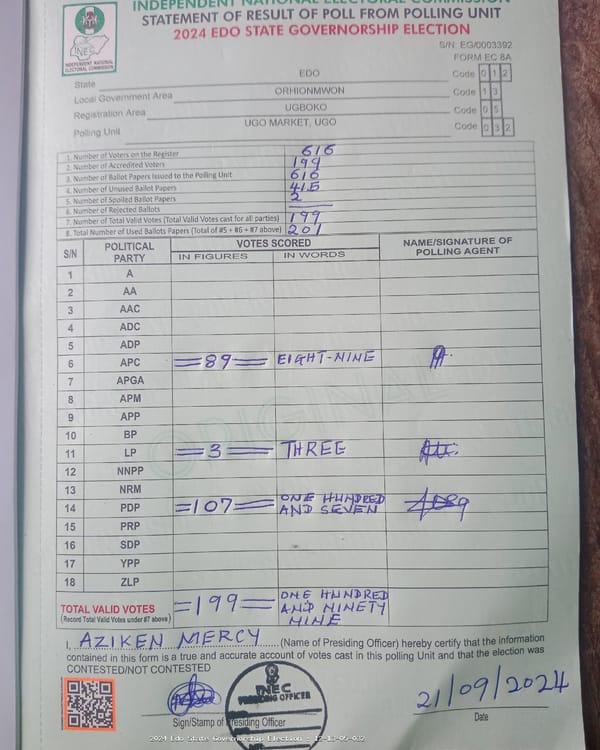 INDEPENDENT NATIONAL ELECTORAL COMMISSION
STATEMENT OF RESULT OF POLL FROM POLLING UNIT
2024 EDO STATE GOVERNORSHIP ELECTION
INEC
INDEPENDENT NATIONAL
ELECTORAL COMMISSION
S/N: EG/0003392
FORM EC 8A
State EDO Code 0 1 2
Local Government Area ORHIONMWON Code 1 3
Registration Area UGBOKO Code 0 5
Polling Unit UGO MARKET, UGO Code 0 3 2
1. Number of Voters on the Register 616
2. Number of Accredited Voters 199
3. Number of Ballot Papers Issued to the Polling Unit 616
4. Number of Unused Ballot Papers 415
5. Number of Spoiled Ballot Papers 2
6. Number of Rejected Ballots
7. Number of Total Valid Votes (Total Valid Votes cast for all parties) 199
8. Total Number of Used Ballots Papers (Total of #5 + #6 +#7 above) 201
S/N POLITICAL PARTY VOTES SCORED NAME/SIGNATURE OF POLLING AGENT
IN FIGURES IN WORDS
1 A
2 AA
3 AAC
4 ADC
5 ADP
6 APC =89= EIGHT-NINE
7 APGA
8 APM
9 APP
10 BP
11 LP =3= THREE
12 NNPP
13 NRM
14 PDP =107= ONE HUNDRED AND SEVEN
15 PRP
16 SDP
17 YPP
18 ZLP
ORIGINAL
TOTAL VALID VOTES =199= ONE HUNDRED AND NINETY NINE
(Record Total Valid Votes under #7 above)
I, AZIKEN MERCY (Name of Presiding Officer) hereby certify that the information
contained in this form is a true and accurate account of votes cast in this polling Unit and that the election was
CONTESTED/NOT CONTESTED
INEC
PRESIDING OFFICER
21/09/2024
Sign/Stamp of Presiding Officer
Date
2024 Edo State Governorship Election - 12-13-05-032